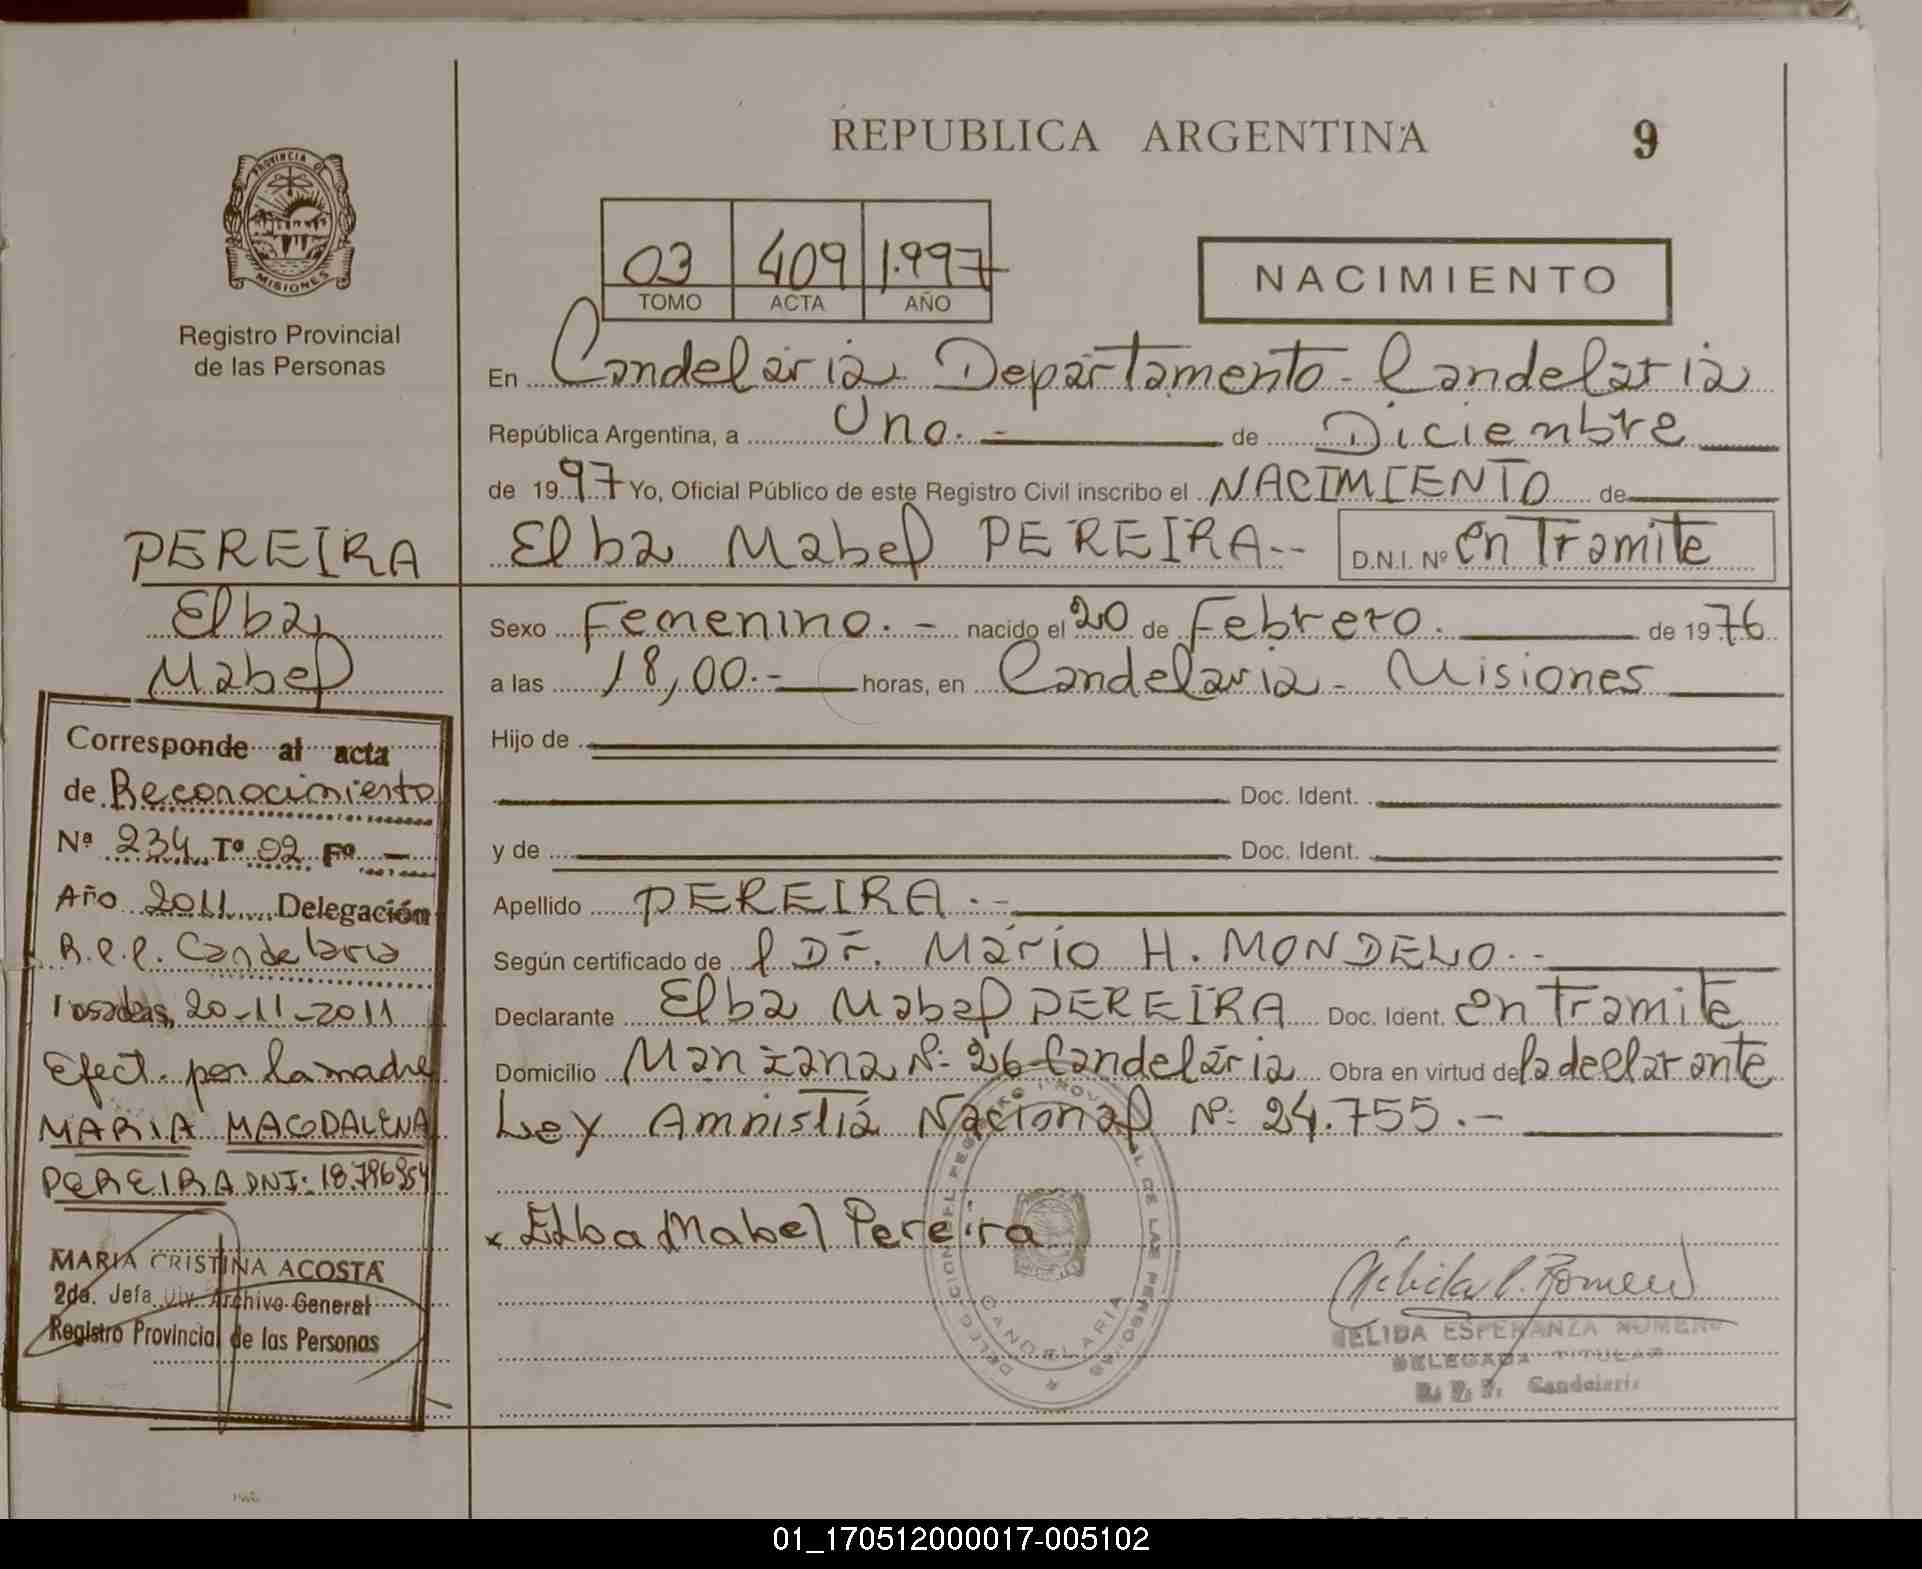 REPUBLICA ARGENTINA
9
PROVINCIA DE
MISIONES
Registro Provincial
de las Personas
03 409 1.997
TOMO ACTA AÑO
NACIMIENTO
En Candelaria Departamento - Candelaria
República Argentina, a Uno.- de Diciembre
de 1997 Yo, Oficial Público de este Registro Civil inscribo el NACIMIENTO de
Elba Mabel PEREIRA.-- D.N.I. Nº en Tramite
Sexo Femenino.- nacido el 20 de Febrero. de 1976
a las 18,00.- horas, en Candelaria - Misiones
Hijo de
Doc. Ident.
y de Doc. Ident.
Apellido PEREIRA.-
Según certificado de l Dr. Mario H. MONDELO.--
Declarante Elba Mabel PEREIRA Doc. Ident. en Tramite
Domicilio Manzana Nº: 26-Candelaria Obra en virtud de la declarante
Ley Amnistia Nacional Nº: 24.755.-
x Elba Mabel Pereira
CANDELARIA
DELEGADA TITULAR
R. P. P. Candelaria
PEREIRA
Elba
Mabel
Corresponde al acta
de Reconocimiento
Nº 234 Tº 02 Fº -
Año 2011 Delegación
R.P.P. Candelaria
Posadas, 20-11-2011
Efect. por la madre
MARIA MAGDALENA
PEREIRA DNI: 18.796.954
MARIA CRISTINA ACOSTA
2da. Jefa Div. Archivo General
Registro Provincial de las Personas
01_170512000017-005102